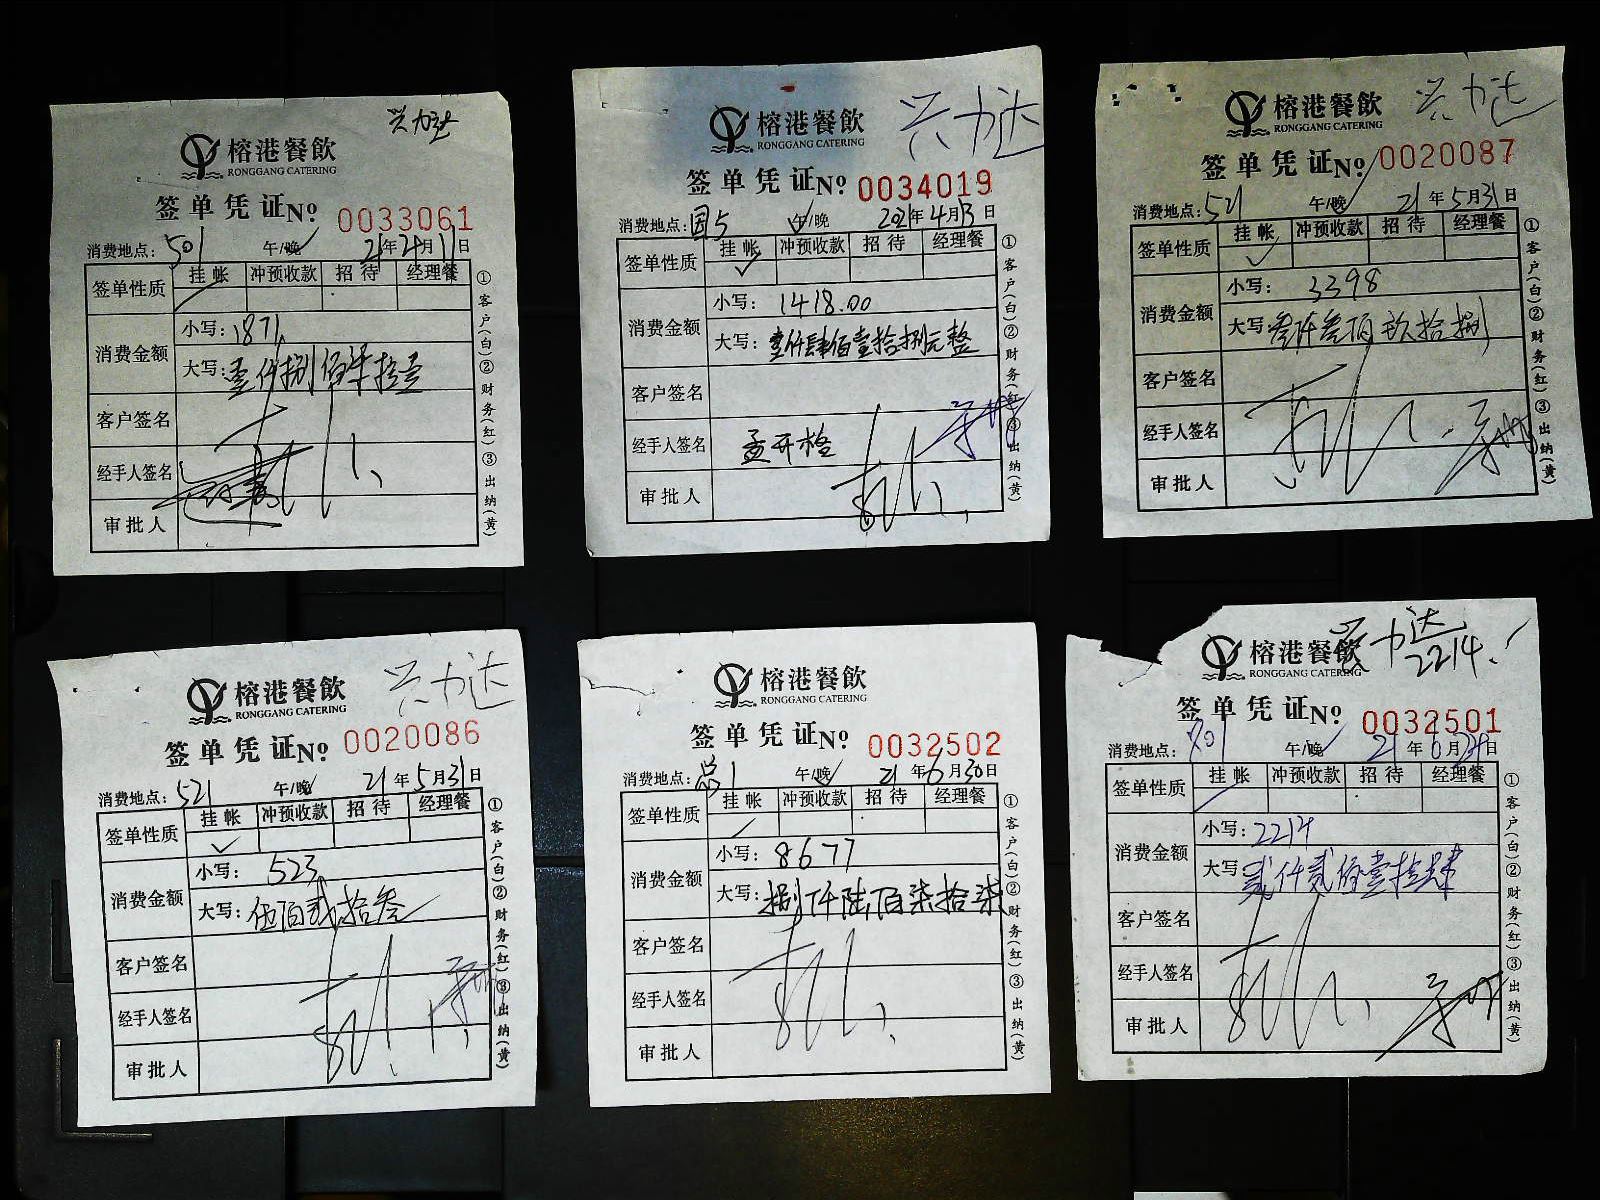 兴力达
榕港餐飲
RONGGANG CATERING
签单凭证№ 0033061
消费地点：501 午/晚 21年4月11日
签单性质 挂帐 冲预收款 招待 经理餐
消费金额 小写：1871
大写：壹仟捌佰柒拾壹
客户签名
经手人签名
审批人
①客户(白)②财务(红)③出纳(黄)
兴力达
榕港餐飲
RONGGANG CATERING
签单凭证№ 0034019
消费地点：国5 午/晚 2021年4月13日
签单性质 挂帐 冲预收款 招待 经理餐
消费金额 小写：1418.00
大写：壹仟肆佰壹拾捌元整
客户签名
经手人签名 孟开栓
审批人
①客户(白)②财务(红)③出纳(黄)
兴力达
榕港餐飲
RONGGANG CATERING
签单凭证№ 0020087
消费地点：521 午/晚 21年5月31日
签单性质 挂帐 冲预收款 招待 经理餐
消费金额 小写：3398
大写：叁仟叁佰玖拾捌
客户签名
经手人签名
审批人
①客户(白)②财务(红)③出纳(黄)
兴力达
榕港餐飲
RONGGANG CATERING
签单凭证№ 0020086
消费地点：521 午/晚 21年5月31日
签单性质 挂帐 冲预收款 招待 经理餐
消费金额 小写：523
大写：伍佰贰拾叁
客户签名
经手人签名
审批人
①客户(白)②财务(红)③出纳(黄)
榕港餐飲
RONGGANG CATERING
签单凭证№ 0032502
消费地点：总1 午/晚 21年6月30日
签单性质 挂帐 冲预收款 招待 经理餐
消费金额 小写：8677
大写：捌仟陆佰柒拾柒
客户签名
经手人签名
审批人
①客户(白)②财务(红)③出纳(黄)
兴力达
2214.
榕港餐飲
RONGGANG CATERING
签单凭证№ 0032501
消费地点：701 午/晚 21年6月24日
签单性质 挂帐 冲预收款 招待 经理餐
消费金额 小写：2214
大写：贰仟贰佰壹拾肆
客户签名
经手人签名
审批人
①客户(白)②财务(红)③出纳(黄)